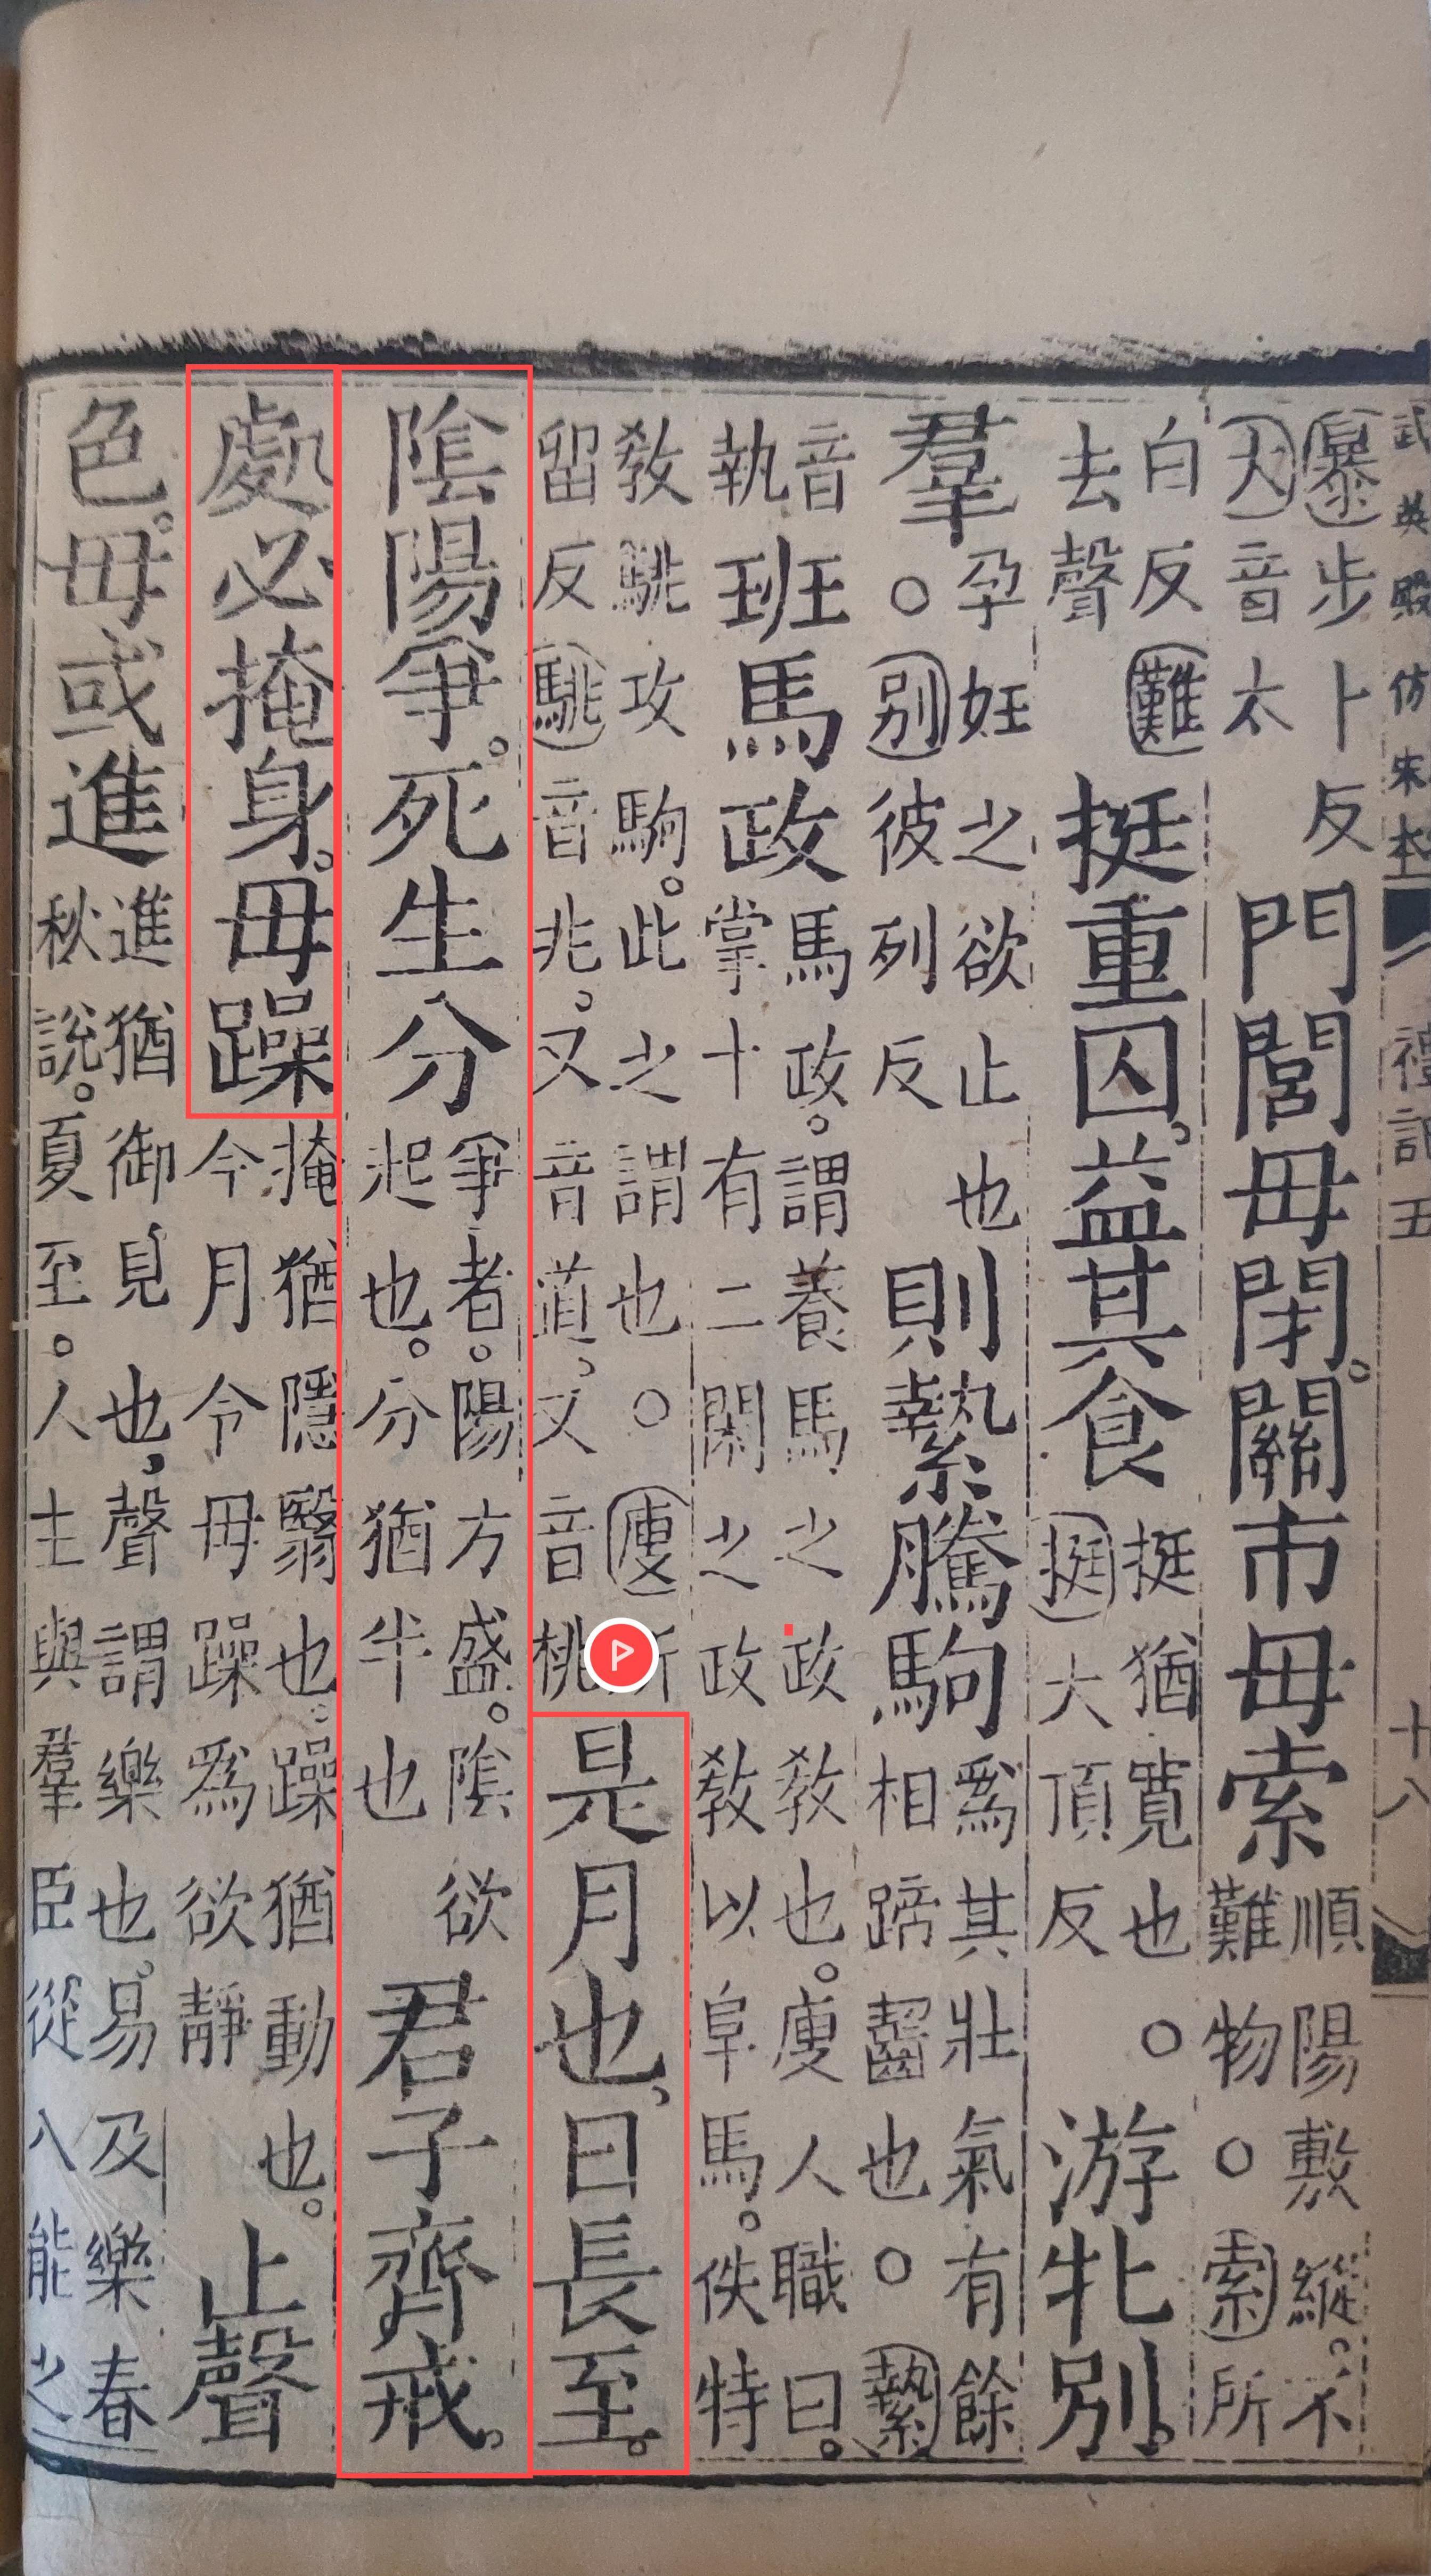 武英殿仿宋本
禮記五
十八
暴步卜反
大音太
門閭毋閉。關市毋索
順陽敷縱。不
難物○索所
白反難
去聲
挺重囚。益其食
挺猶寬也○
挺大頂反
游牝別。
羣
孕妊之欲止也
○別彼列反
則縶騰駒
爲其壯氣有餘
相蹄齧也○縶
音
執
班馬政
馬政。謂養馬之政教也。廋人職曰。
掌十有二閑之政教以阜馬。佚特
教駣攻駒。此之謂也○廋
留反駣音兆。又音道。又音桃
是月也、日長至。
陰陽爭。死生分
爭者。陽方盛。陰欲
起也。分猶半也
君子齊戒。
處必掩身。毋躁
掩猶隱翳也。躁猶動也。
今月令毋躁爲欲靜
止聲
色。毋或進
進猶御見也、聲謂樂也。易及樂春
秋說。夏至。人主與羣臣從八能之